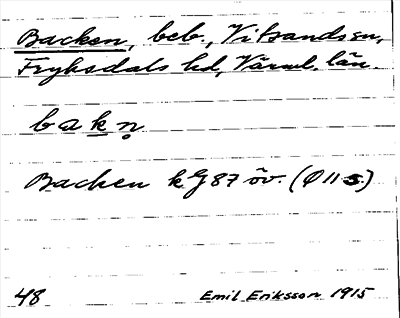 Backen, beb., Vitsands sn,
Fryksdals hd, Värml. län.
bakn̥
Backen k G 87 öv. (Ö 11 s.)
48 Emil Eriksson 1915